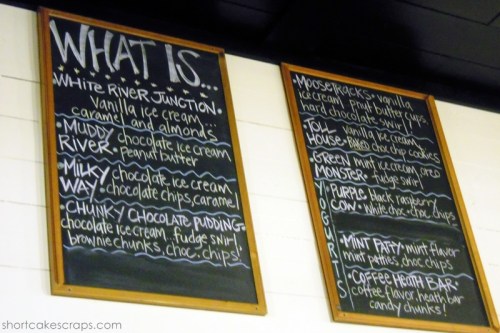 WHAT IS...
WHITE RIVER JUNCTION •
Vanilla ice cream
caramel and almonds
• MUDDY RIVER • chocolate ice cream,
peanut butter
• MILKY WAY • chocolate ice cream,
chocolate chips, caramel
• CHUNKY CHOCOLATE PUDDING •
chocolate ice cream, fudge swirl
brownie chunks, choc. chips!
• MOOSE TRACKS • vanilla
ice cream, pnut butter cups
hard chocolate swirl
• TOLL HOUSE • vanilla ice cream,
choc chip cookies
• GREEN MONSTER • mint ice cream, oreo
fudge swirl
YOGURTS
• PURPLE COW • black raspberry
white choc • choc chips
• MINT PATTY • mint flavor
mint patties, choc chips
• COFFEE HEATH BAR •
coffee flavor, heath bar
candy chunks!
shortcakescraps.com